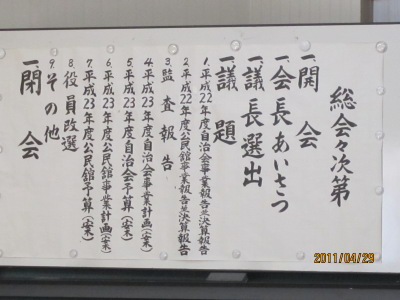 総会々次第
一、開会
一、会長あいさつ
一、議長選出
一、議題
1.平成22年度自治会事業報告並決算報告
2.平成22年度公民館事業報告並決算報告
3.監査報告
4.平成23年度自治会事業計画(案)
5.平成23年度自治会予算(案)
6.平成23年度公民館事業計画(案)
7.平成23年度公民館予算(案)
8.役員改選
9.その他
一、閉会
2011/04/29